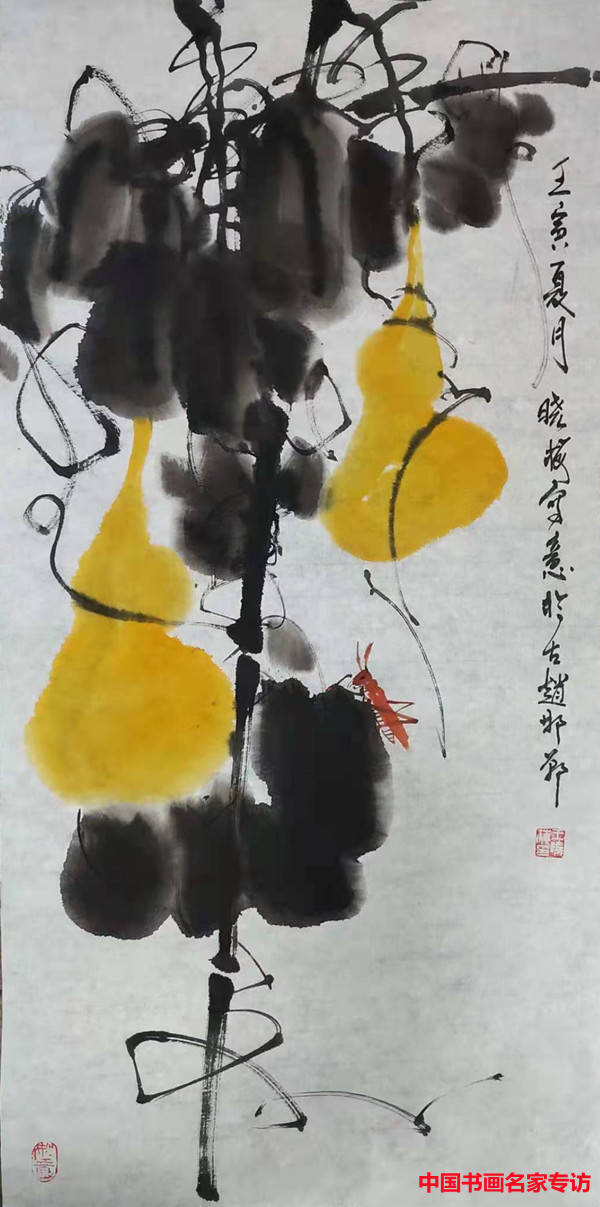 壬寅夏月 晓梅写意於古趙邯鄲
中国书画名家专访